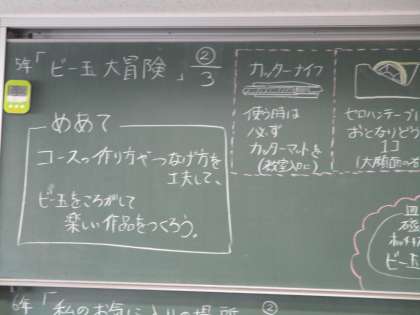 5年「ビー玉大冒険」②/3
めあて
コースの作り方やつなげ方を
工夫して、
ビー玉をころがして
楽しい作品をつくろう。
カッターナイフ
使う時は
必ず
カッターマットを
(教室入口に)
セロハンテープに
おとなりどう
1コ
(大
皿
磁
ビー玉
6年「私のお気に入りの場所 ②